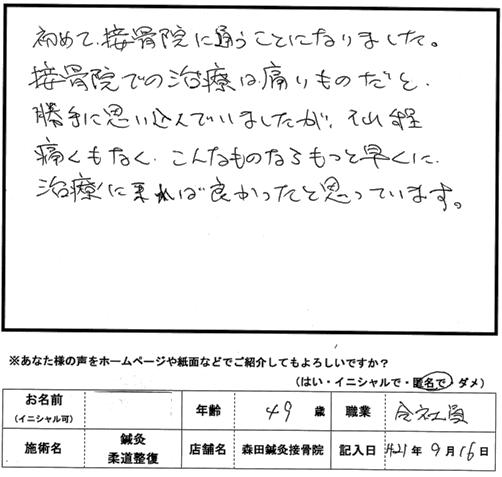 初めて、接骨院に通うことになりました。
接骨院での治療は痛いものだと、
勝手に思い込んでいましたが、それ程
痛くもなく、こんなものならもっと早くに、
治療に来れば良かったと思っています。
※あなた様の声をホームページや紙面などでご紹介してもよろしいですか？
（はい・イニシャルで・匿名で・ダメ）
お名前
（イニシャル可）
年齢 49 歳 職業 会社員
施術名 鍼灸 柔道整復 店舗名 森田鍼灸接骨院 記入日 H21年 9月16日